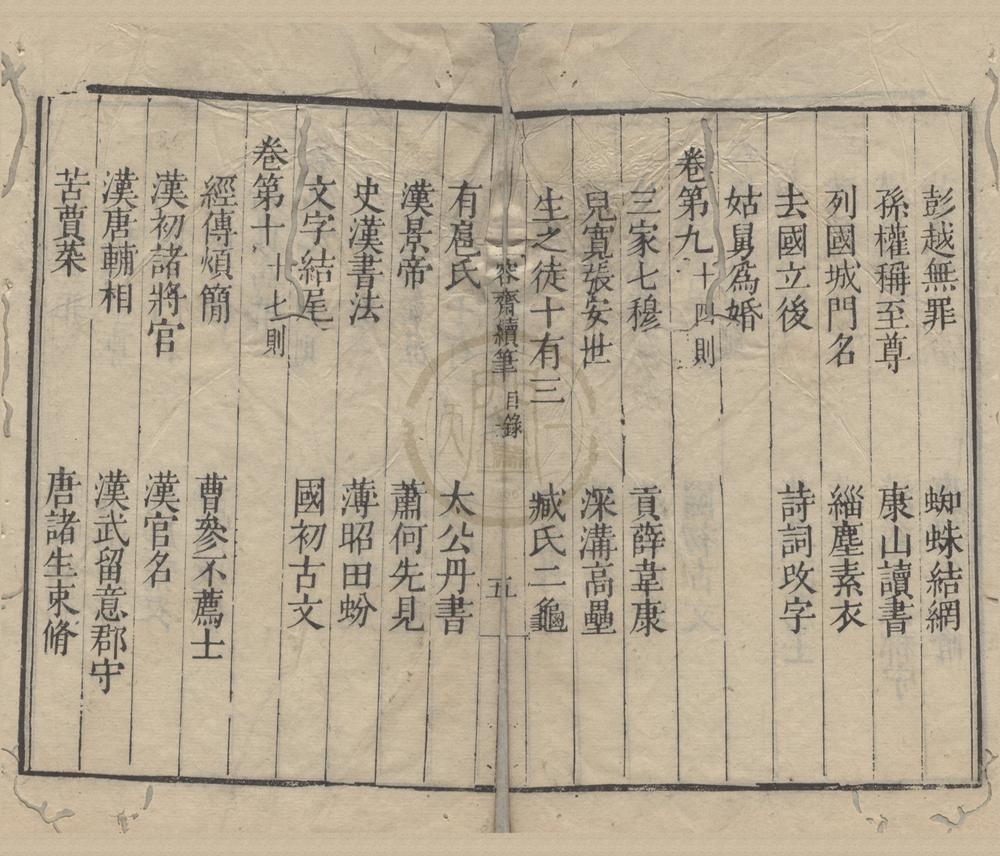 彭越無罪 蜘蛛結網
孫權稱至尊 康山讀書
列國城門名 緇塵素衣
去國立後 詩詞改字
姑舅為婚
卷第九 十四則
三家七穆 貢薛韋康
兒寬張安世 深溝高壘
生之徒十有三 臧氏二龜
容齋續筆 目錄 五
有扈氏 太公丹書
漢景帝 蕭何先見
史漢書法 薄昭田蚡
文字結尾 國初古文
卷第十 十七則
經傳煩簡 曹參不薦士
漢初諸將官 漢官名
漢唐輔相 漢武留意郡守
苦蕒菜 唐諸生束脩